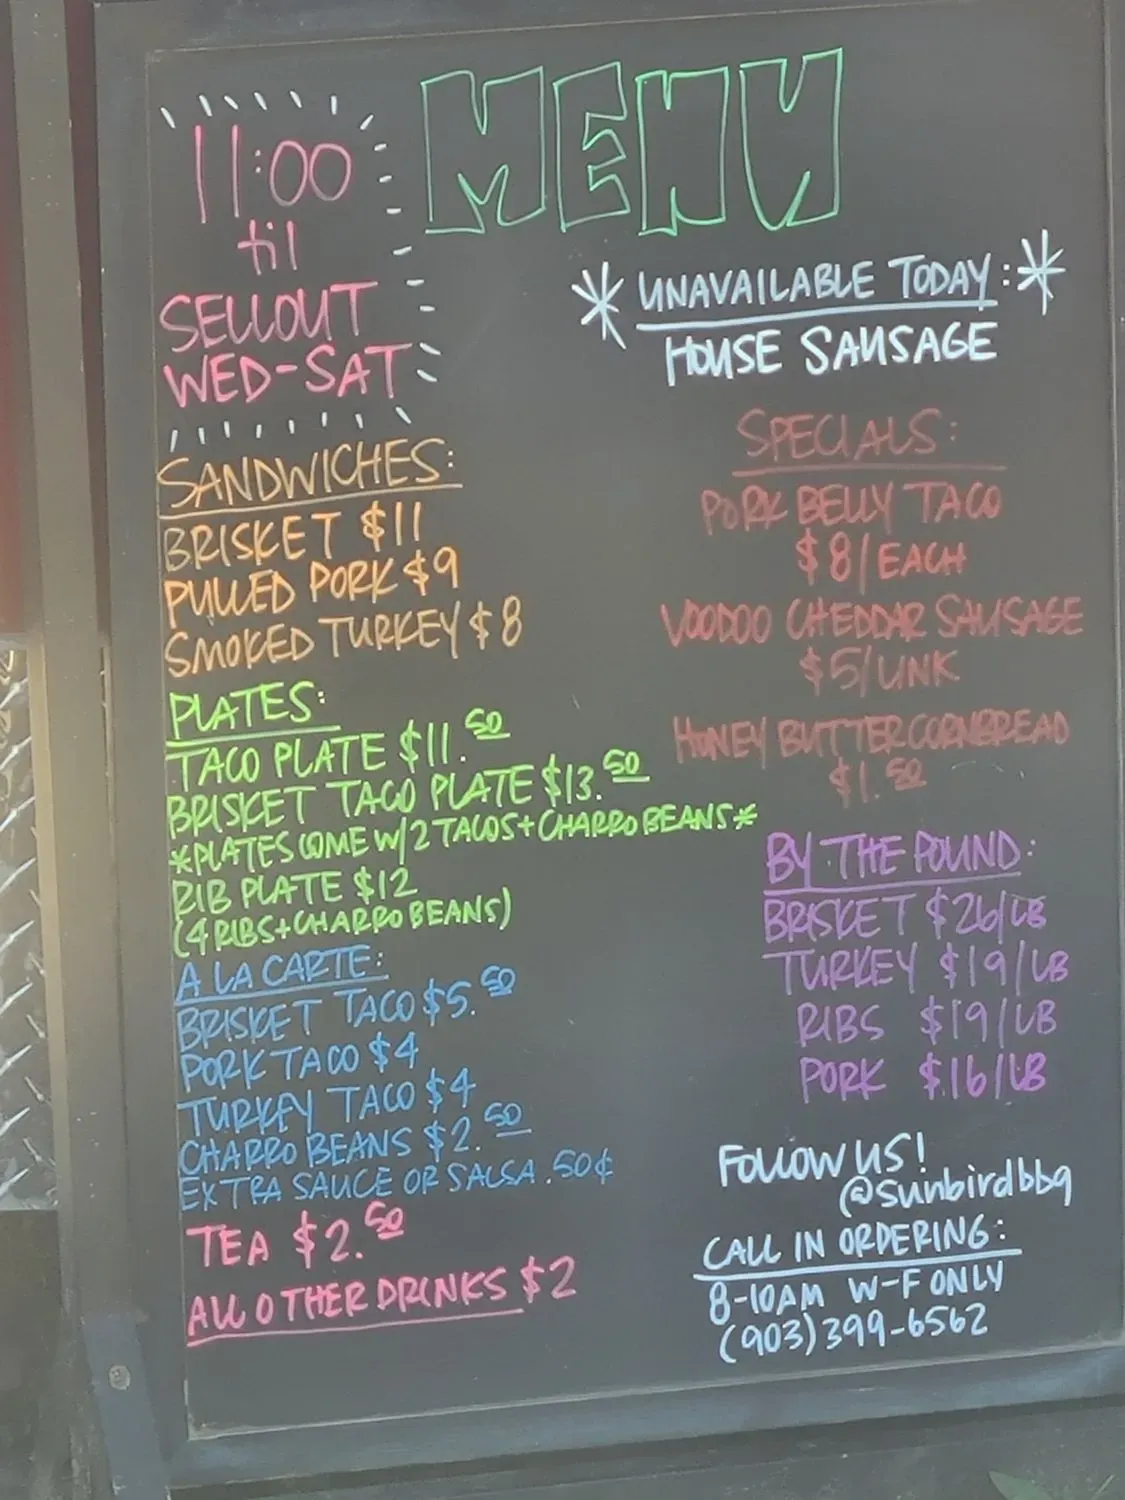 MENU
11:00
til
SELLOUT
WED-SAT
*UNAVAILABLE TODAY:*
HOUSE SAUSAGE
SANDWICHES:
BRISKET $11
PULLED PORK $9
SMOKED TURKEY $8
PLATES:
TACO PLATE $11.50
BRISKET TACO PLATE $13.50
*PLATES COME W/2 TACOS+CHARRO BEANS*
RIB PLATE $12
(4 RIBS+CHARRO BEANS)
A LA CARTE:
BRISKET TACO $5.50
PORK TACO $4
TURKEY TACO $4
CHARRO BEANS $2.50
EXTRA SAUCE OR SALSA .50¢
TEA $2.50
ALL OTHER DRINKS $2
SPECIALS:
PORK BELLY TACO
$8/EACH
VOODOO CHEDDAR SAUSAGE
$5/LINK
HONEY BUTTER CORNBREAD
$1.50
BY THE POUND:
BRISKET $26/LB
TURKEY $19/LB
RIBS $19/LB
PORK $16/LB
FOLLOW US!
@sunbirdbbq
CALL IN ORDERING:
8-10AM W-F ONLY
(903)399-6562